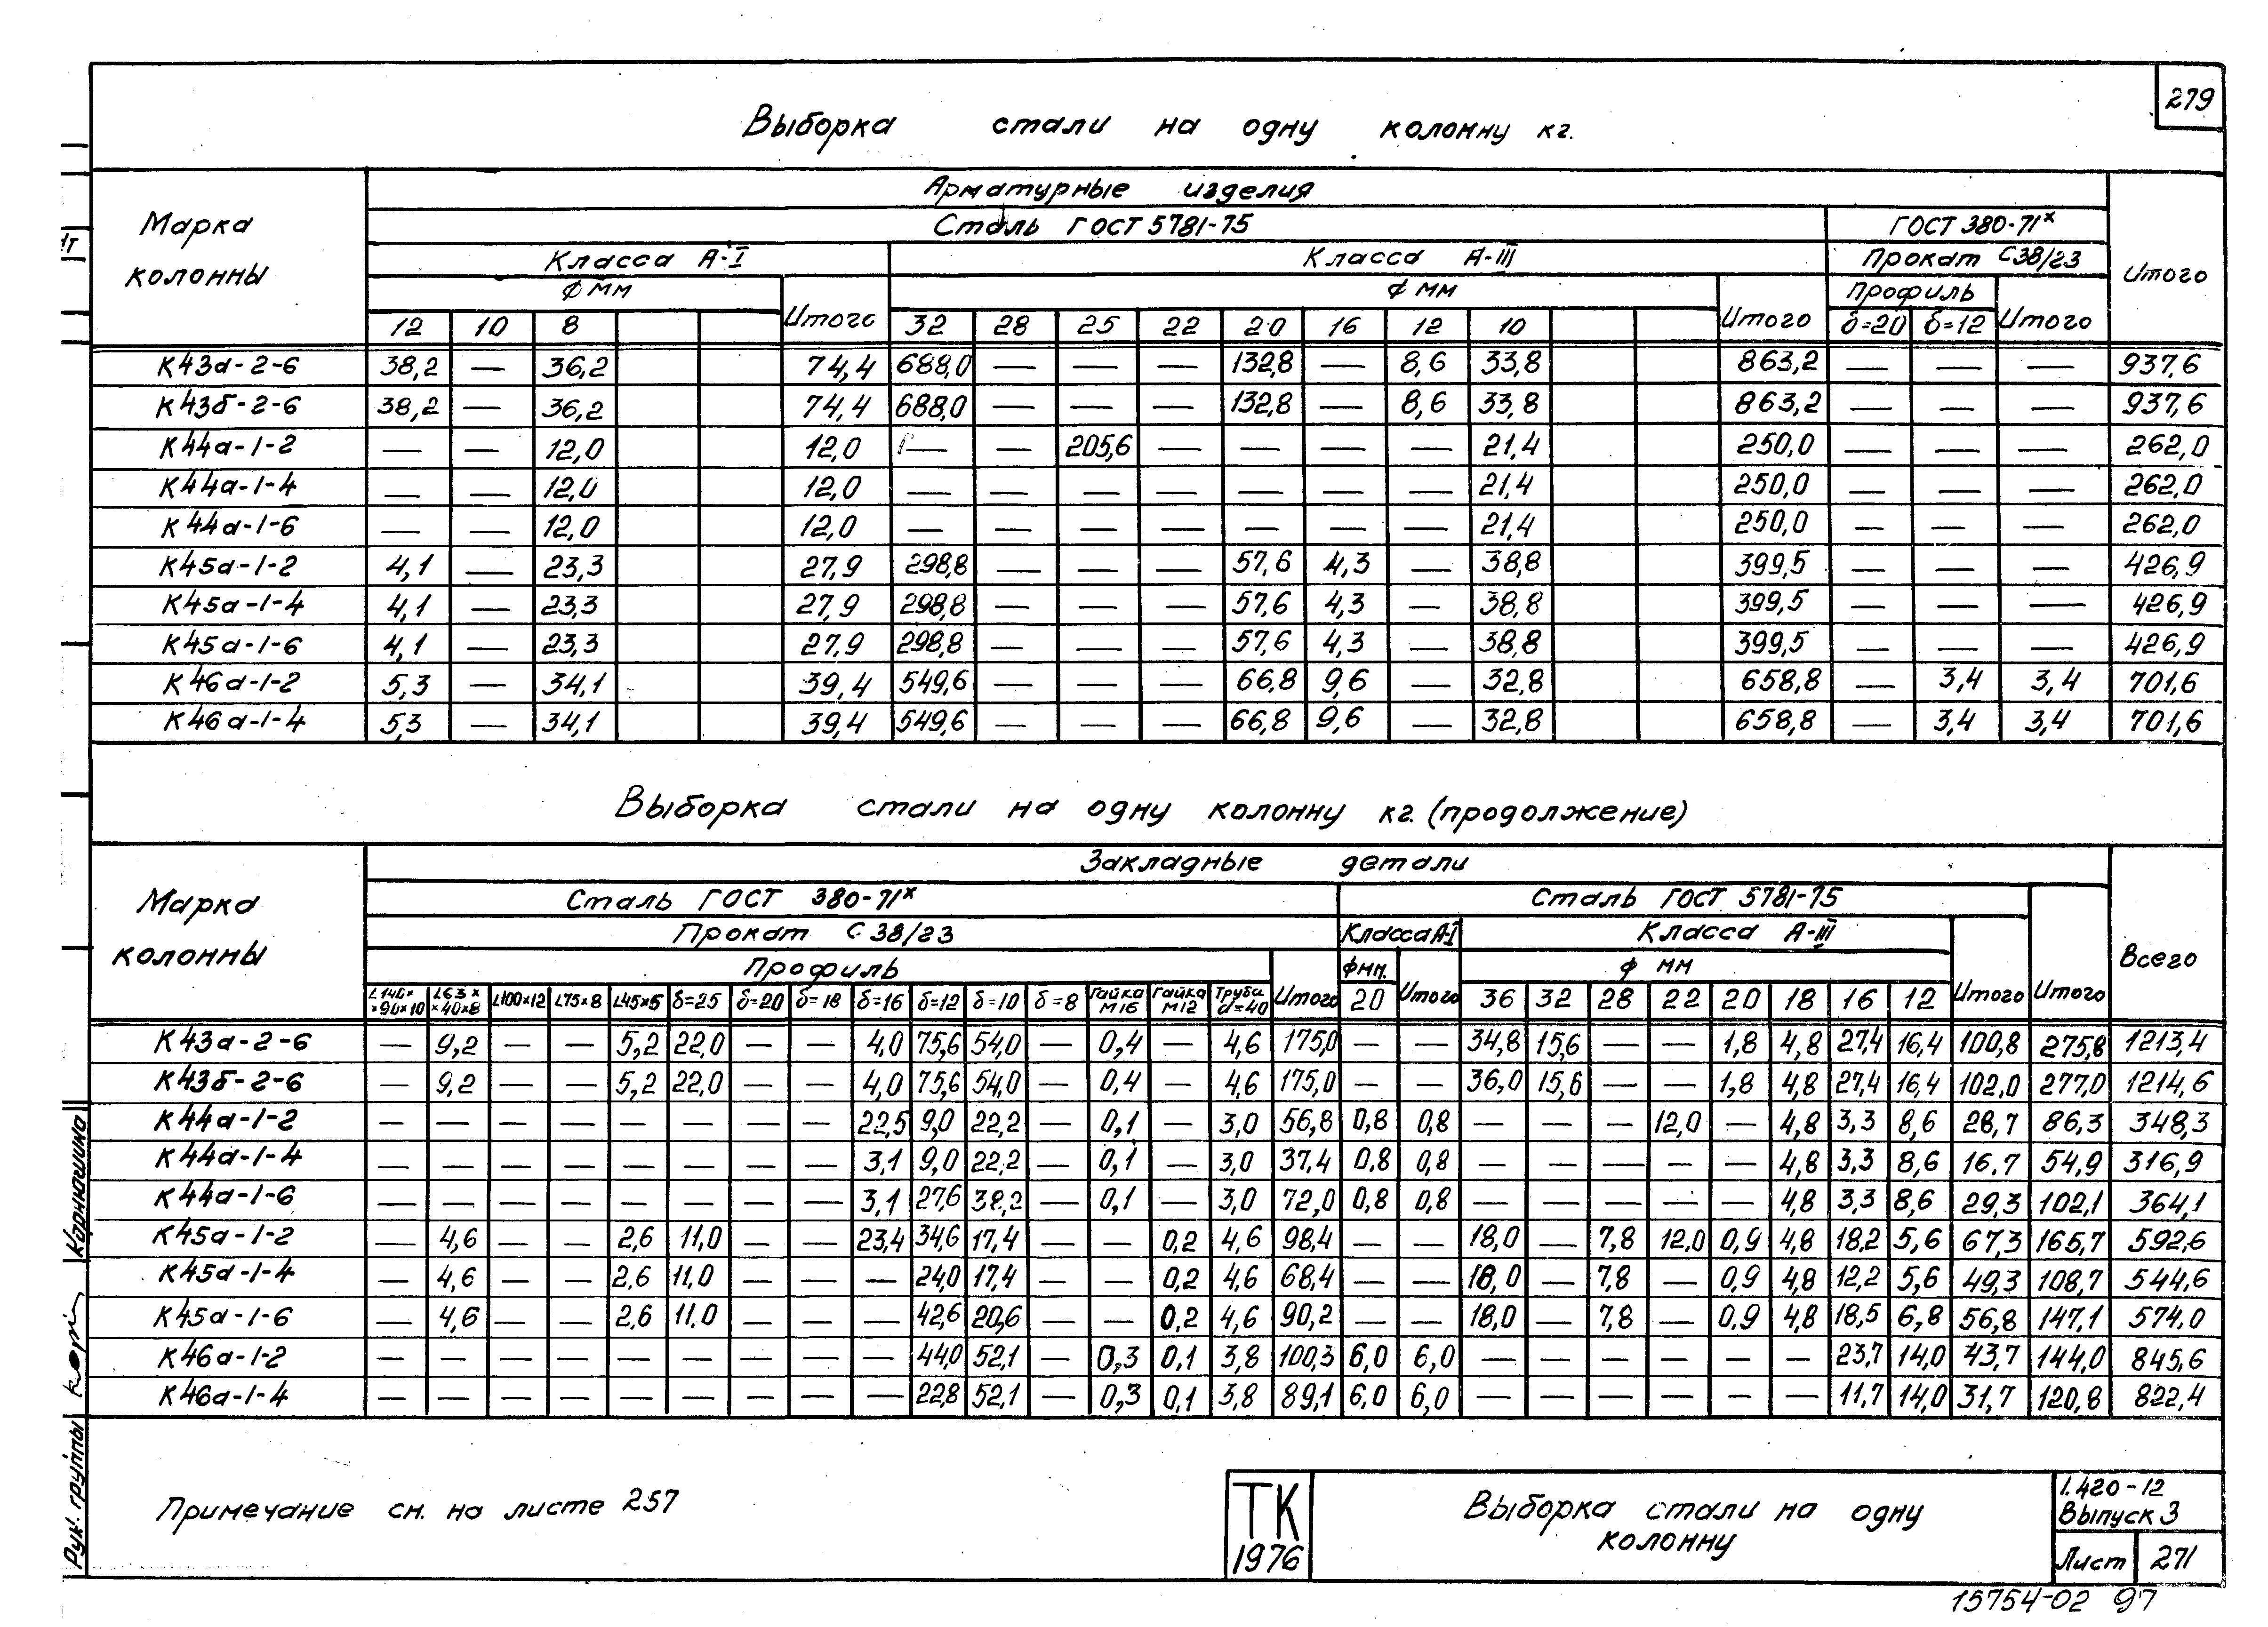 279
Выборка стали на одну колонну кг.
Марка колонны
Арматурные изделия
Итого
Сталь ГОСТ 5781-75
ГОСТ 380-71х
Класса А-I
Класса А-III
Прокат С38/23
ф мм
Итого
ф мм
Итого
Профиль
Итого
12 10 8 32 28 25 22 20 16 12 10 δ=20 δ=12
К43а-2-6 38,2 — 36,2 74,4 688,0 — — — 132,8 — 8,6 33,8 863,2 — — — 937,6
К43б-2-6 38,2 — 36,2 74,4 688,0 — — — 132,8 — 8,6 33,8 863,2 — — — 937,6
К44а-1-2 — — 12,0 12,0 — — 205,6 — — — — 21,4 250,0 — — — 262,0
К44а-1-4 — — 12,0 12,0 — — — — — — — 21,4 250,0 — — — 262,0
К44а-1-6 — — 12,0 12,0 — — — — — — — 21,4 250,0 — — — 262,0
К45а-1-2 4,1 — 23,3 27,9 298,8 — — — 57,6 4,3 — 38,8 399,5 — — — 426,9
К45а-1-4 4,1 — 23,3 27,9 298,8 — — — 57,6 4,3 — 38,8 399,5 — — — 426,9
К45а-1-6 4,1 — 23,3 27,9 298,8 — — — 57,6 4,3 — 38,8 399,5 — — — 426,9
К46а-1-2 5,3 — 34,1 39,4 549,6 — — — 66,8 9,6 — 32,8 658,8 — 3,4 3,4 701,6
К46а-1-4 5,3 — 34,1 39,4 549,6 — — — 66,8 9,6 — 32,8 658,8 — 3,4 3,4 701,6
Выборка стали на одну колонну кг. (продолжение)
Марка колонны
Закладные детали
Всего
Сталь ГОСТ 380-71х
Сталь ГОСТ 5781-75
Прокат С 38/23
Класса А-I
Класса А-III
Профиль
Итого
фмм.
Итого
ф мм
Итого
Итого
L140××90×10 L63××40×8 L100×12 L75×8 L45×5 δ=25 δ=20 δ=18 δ=16 δ=12 δ=10 δ=8 Гайка М16 Гайка М12 Труба d=40 20 36 32 28 22 20 18 16 12
К43а-2-6 — 9,2 — — 5,2 22,0 — — 4,0 75,6 54,0 — 0,4 — 4,6 175,0 — — 34,8 15,6 — — 1,8 4,8 27,4 16,4 100,8 275,8 1213,4
К43б-2-6 — 9,2 — — 5,2 22,0 — — 4,0 75,6 54,0 — 0,4 — 4,6 175,0 — — 36,0 15,6 — — 1,8 4,8 27,4 16,4 102,0 277,0 1214,6
К44а-1-2 — — — — — — — — 22,5 9,0 22,2 — 0,1 — 3,0 56,8 0,8 0,8 — — — 12,0 — 4,8 3,3 8,6 28,7 86,3 348,3
К44а-1-4 — — — — — — — — 3,1 9,0 22,2 — 0,1 — 3,0 37,4 0,8 0,8 — — — — — 4,8 3,3 8,6 16,7 54,9 316,9
К44а-1-6 — — — — — — — — 3,1 27,6 38,2 — 0,1 — 3,0 72,0 0,8 0,8 — — — — — 4,8 3,3 8,6 29,3 102,1 364,1
К45а-1-2 — 4,6 — — 2,6 11,0 — — 23,4 34,6 17,4 — — 0,2 4,6 98,4 — — 18,0 — 7,8 12,0 0,9 4,8 18,2 5,6 67,3 165,7 592,6
К45а-1-4 — 4,6 — — 2,6 11,0 — — — 24,0 17,4 — — 0,2 4,6 68,4 — — 18,0 — 7,8 — 0,9 4,8 12,2 5,6 49,3 108,7 544,6
К45а-1-6 — 4,6 — — 2,6 11,0 — — — 42,6 20,6 — — 0,2 4,6 90,2 — — 18,0 — 7,8 — 0,9 4,8 18,5 6,8 56,8 147,1 574,0
К46а-1-2 — — — — — — — — — 44,0 52,1 — 0,3 0,1 3,8 100,3 6,0 6,0 — — — — — — 23,7 14,0 43,7 144,0 845,6
К46а-1-4 — — — — — — — — — 22,8 52,1 — 0,3 0,1 3,8 89,1 6,0 6,0 — — — — — — 11,7 14,0 31,7 120,8 822,4
Рук. группы Корнюшина
Примечание см. на листе 257
ТК
1976
Выборка стали на одну
колонну
1.420-12
Выпуск 3
Лист 271
15754-02 97